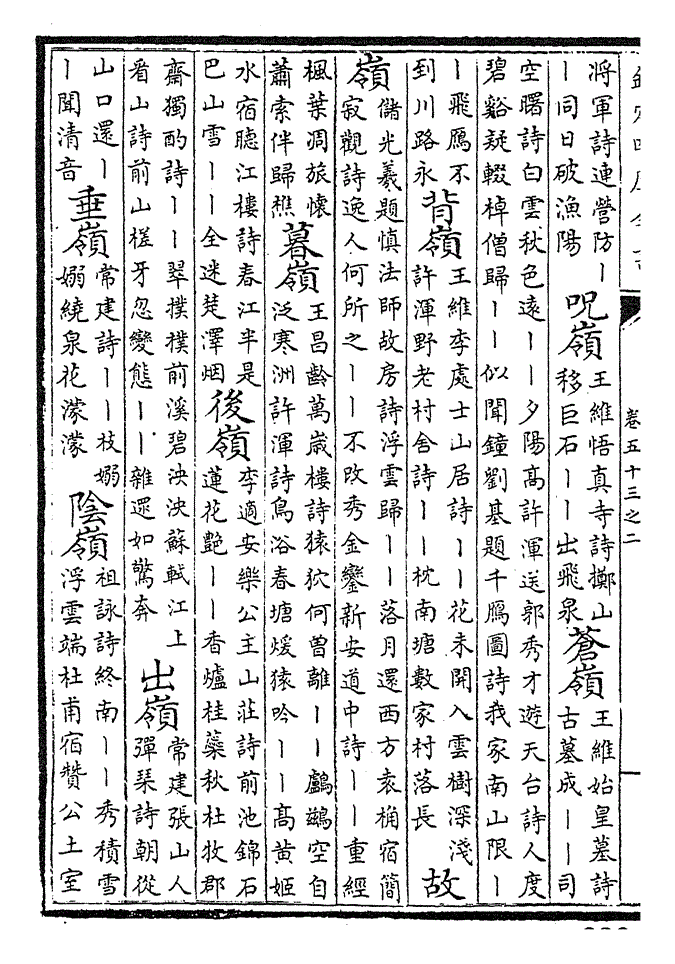 卷五十三之二
將軍詩連營防丨
丨同日破漁陽
呪嶺
王維悟真寺詩擲山
移巨石丨丨出飛泉
蒼嶺
王維始皇墓詩
古墓成丨丨司
空曙詩白雲秋色遠丨丨夕陽高許渾送郭秀才遊天台詩人度
碧谿疑輟棹僧歸丨丨似聞鐘劉基題千鴈圖詩我家南山限丨
丨飛鴈不
到川路永
背嶺
王維李處士山居詩丨丨花未開入雲樹深淺
許渾野老村舍詩丨丨枕南塘數家村落長
故
嶺
儲光羲題慎法師故房詩浮雲歸丨丨落月還西方袁桷宿簡
寂觀詩逸人何所之丨丨不改秀金鑾新安道中詩丨丨重經
楓葉凋旅懷
蕭索伴歸樵
暮嶺
王昌齡萬歲樓詩猿狖何曾離丨丨鸕鷀空自
泛寒洲許渾詩鳥浴春塘煖猿吟丨丨高黄姬
水宿聽江樓詩春江半是
巴山雪丨丨全迷楚澤烟
後嶺
李適安樂公主山莊詩前池錦石
蓮花艶丨丨香爐桂蘂秋杜牧郡
齋獨酌詩丨丨翠撲撲前溪碧泱泱蘇軾江上
看山詩前山槎牙忽變態丨丨雜遝如驚奔
出嶺
常建張山人
彈琴詩朝從
山口還丨
丨聞清音
垂嶺
常建詩丨丨枝嫋
嫋繞泉花濛濛
陰嶺
祖詠詩終南丨丨秀積雪
浮雲端杜甫宿贊公土室